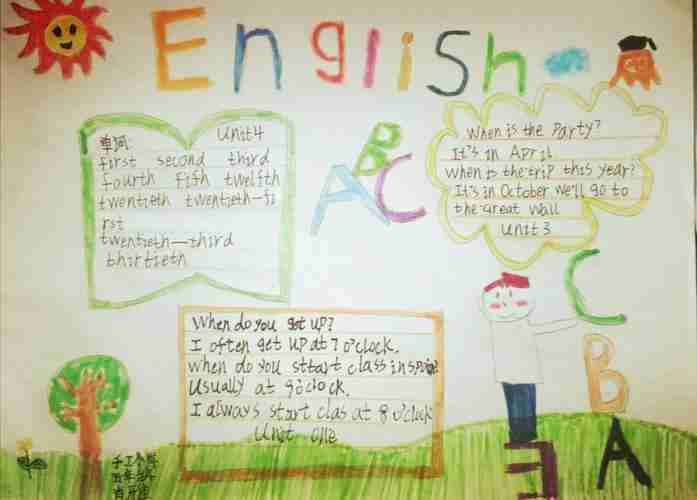 English
单词: Unit4
first second third
fourth fifh twelfth
twentieth twentieth-fi
rst
twentieth—third
thirtieth
ABC
When is the Party?
It's in April
When is the trip this year?
It's in October we'll go to
the Great Wall
Unit 3
When do you get up?
I often get up at 7 o'clock.
when do you sttart class in
Usually at 9 o'clock.
I always start clas at 8 o'clock
Unit One
C
B
A
E